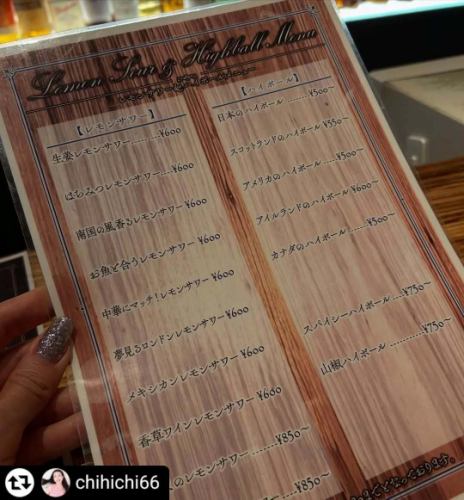 Lemon Sour & Highball Menu
【レモンサワー】
生姜レモンサワー.........¥600
はちみつレモンサワー....¥600
南国の風香るレモンサワー ¥600
お魚と合うレモンサワー ¥600
中華にマッチ!レモンサワー ¥600
夢見るロンドンレモンサワー ¥600
メキシカンレモンサワー ¥600
香草ワインレモンサワー ¥600
のレモンサワー ........¥850
¥850~
【ハイボール】
日本のハイボール ........¥500~
スコットランドのハイボール ¥550~
アメリカのハイボール ....¥500~
アイルランドのハイボール ¥600~
カナダのハイボール .....¥500~
スパイシーハイボール ....¥750~
山椒ハイボール ..........¥750~
となっております。
chihichi66